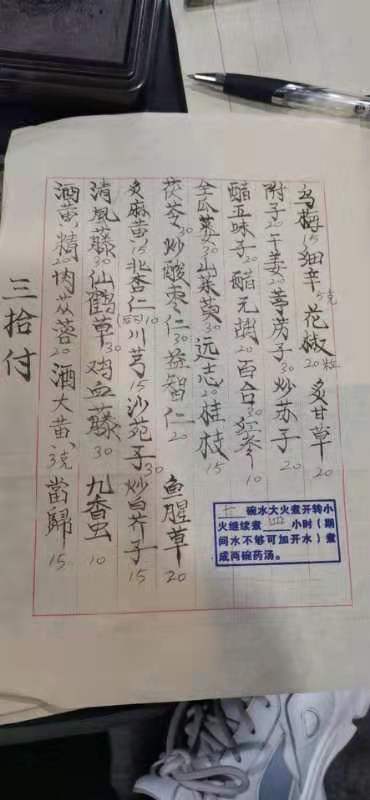 乌梅15 细辛5克 花椒20粒 炙甘草20
附子20 干姜20 葶苈子30 炒苏子20
醋五味子20 醋元胡20 百合30 红参10
全瓜蒌30 山茱萸30 远志20 桂枝15
茯苓30 炒酸枣仁30 益智仁20 鱼腥草20
炙麻黄15 北杏仁10 川芎15 沙苑子30 炒白芥子15
清风藤30 仙鹤草30 鸡血藤30 九香虫10
酒黄精20 肉苁蓉20 酒大黄3克 當歸15
三拾付
七碗水大火煮开转小
火继续煮四小时（期
间水不够可加开水）煮
成两碗药汤。